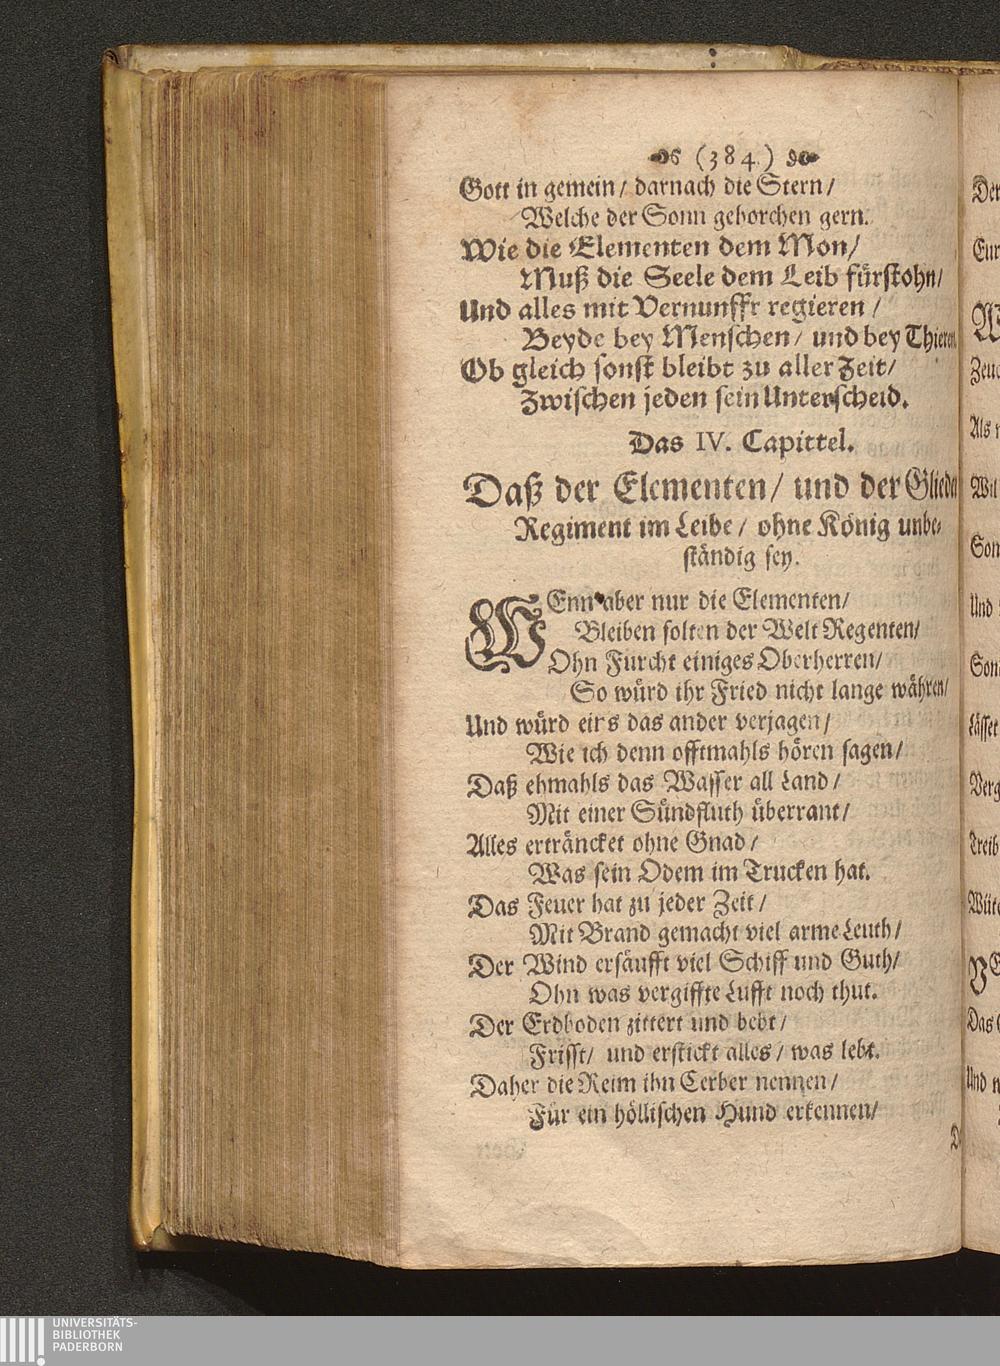 (384)
Gott in gemein/ darnach die Stern/
Welche der Sonn gehorchen gern.
Wie die Elementen dem Mon/
Muß die Seele dem Leib fürstohn/
Und alles mit Vernunffr regieren /
Beyde bey Menschen/ und bey Thieren
Ob gleich sonst bleibt zu aller Zeit/
Zwischen jeden sein Unterscheid.
Das IV. Capittel.
Daß der Elementen/ und der Glieder
Regiment im Leibe/ ohne König unbe-
ständig sey.
WEnn aber nur die Elementen/
Bleiben solten der Welt Regenten/
Ohn Furcht einiges Oberherren/
So würd ihr Fried nicht lange währen/
Und würd eins das ander verjagen/
Wie ich denn offtmahls hören sagen/
Daß ehmahls das Wasser all Land/
Mit einer Sündfluth überrant/
Alles ertråncket ohne Gnad/
Was sein Odem im Trucken hat.
Das Feuer hat zu jeder Zeit/
Mit Brand gemacht viel arme Leuth/
Der Wind ersäufft viel Schiff und Guth/
Ohn was vergiffte Lufft noch thut.
Der Erdboden zittert und bebt/
Frisst/ und erstickt alles/ was lebt.
Daher die Reim ihn Cerber nennen/
Für ein höllischen Hund erkennen/
UNIVERSITÄTS-
BIBLIOTHEK
PADERBORN